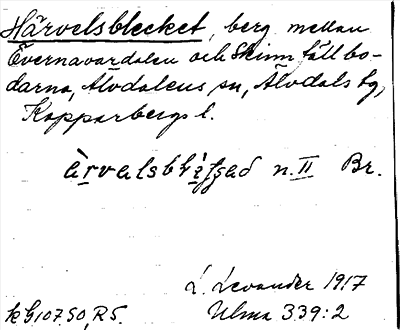 Härvelsblecket, berg mellan
Övernavardalen och Skinnfällbo-
darna, Älvdalens sn, Älvdals tg,
Kopparbergs l.
n. II Br.
L. Levander 1917
kG107.50, R5. Ulma 339:2